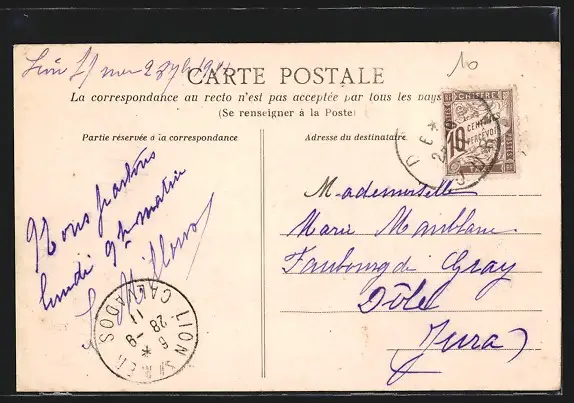 10
CARTE POSTALE
La correspondance au recto n'est pas acceptée par tous les pays
(Se renseigner à la Poste)
Partie réservée à la correspondance
Adresse du destinataire
CHIFFRE
10 CENTIMES
A PERCEVOIR
POSTES
Nous partons
lundi 9h matin
LION S/MER
CALVADOS
28 -9
11
Mademoiselle
Marie Mainblanc
Faubourg de Gray
Dôle
Jura)